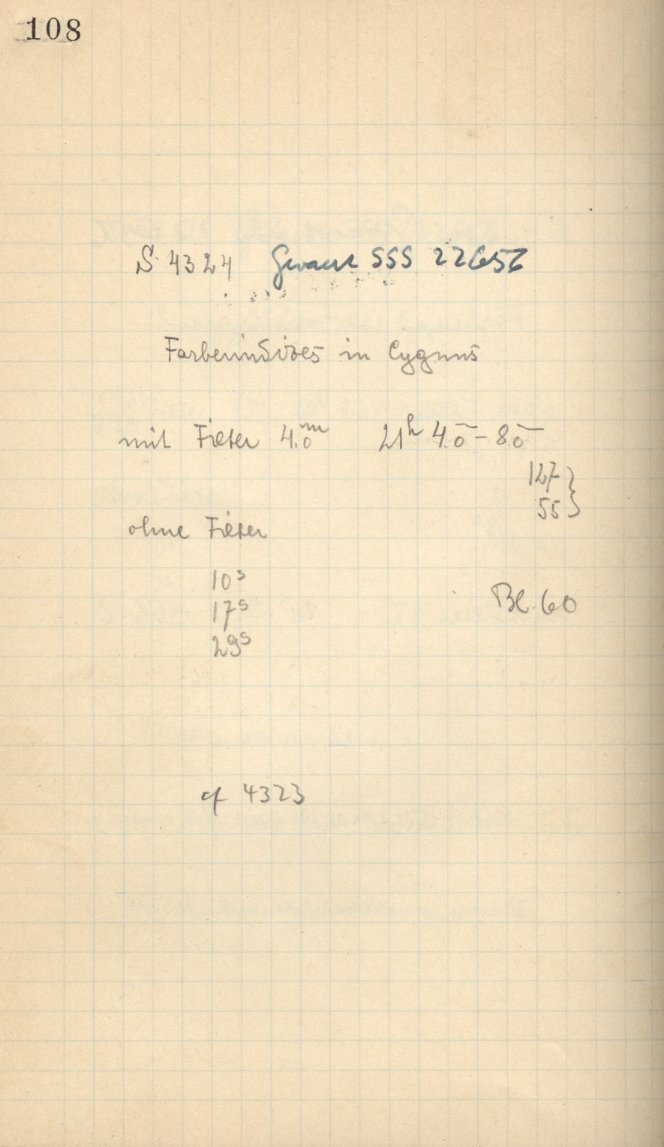 108
S 4324 Gevaert SSS 22656
Farbenindizes in Cygnus
mit Filter 4.0ᵐ 21ʰ 4.0 - 8.0
127 }
55 }
ohne Filter
10ˢ
17ˢ Bl. 60
29ˢ
cf 4323